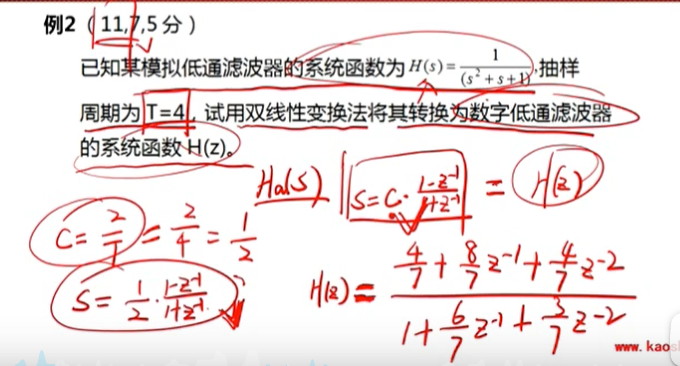 例2（11,7,5分）
已知某模拟低通滤波器的系统函数为 H(s)=1/(s²+s+1),抽样
周期为T=4，试用双线性变换法将其转换为数字低通滤波器
的系统函数H(z)。
Ha(s)|s=C·(1-z⁻¹)/(1+z⁻¹) = H(z)
C=2/T=2/4=1/2
S=1/2·(1-z⁻¹)/(1+z⁻¹)
H(z)=(4/7+8/7z⁻¹+4/7z⁻²)/(1+6/7z⁻¹+3/7z⁻²)
www.kaos